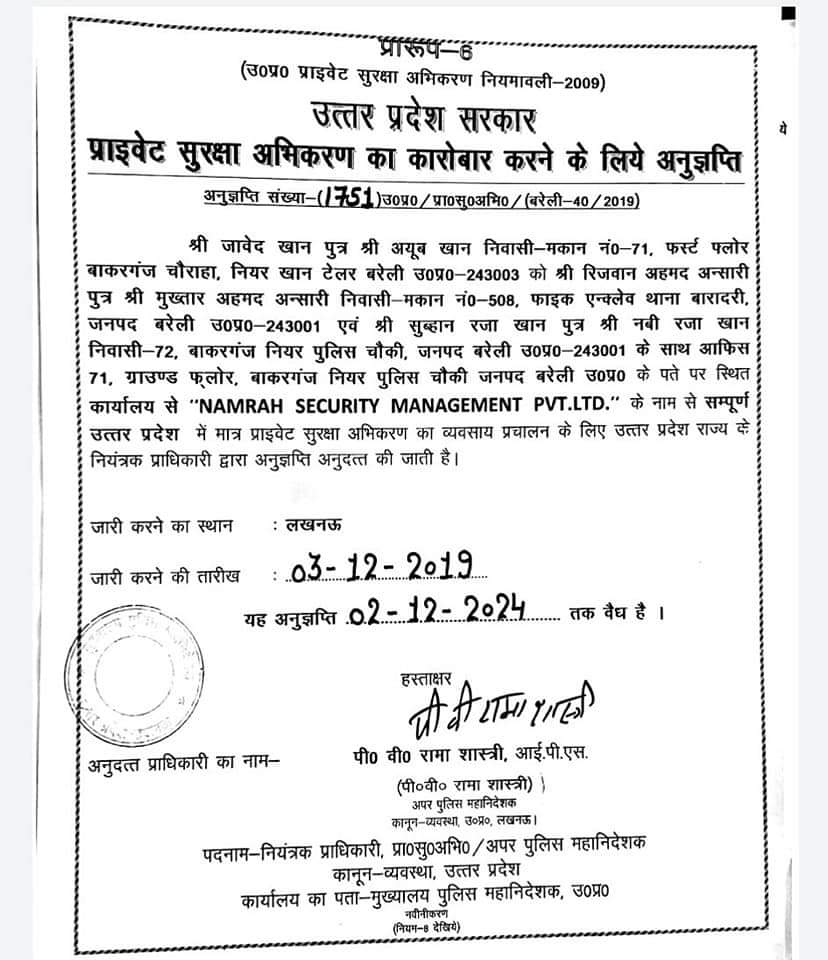 प्रारूप–6
(उ0प्र0 प्राइवेट सुरक्षा अभिकरण नियमावली–2009)
उत्तर प्रदेश सरकार
प्राइवेट सुरक्षा अभिकरण का कारोबार करने के लिये अनुज्ञप्ति
अनुज्ञप्ति संख्या–(1751)उ0प्र0/प्रा0सु0अभि0/(बरेली–40/2019)
ये
श्री जावेद खान पुत्र श्री अयूब खान निवासी–मकान नं0–71, फर्स्ट फ्लोर
बाकरगंज चौराहा, नियर खान टेलर बरेली उ0प्र0–243003 को श्री रिजवान अहमद अन्सारी
पुत्र श्री मुख्तार अहमद अन्सारी निवासी–मकान नं0–508, फाइक एन्क्लेव थाना बारादरी,
जनपद बरेली उ0प्र0–243001 एवं श्री सुब्हान रजा खान पुत्र श्री नबी रजा खान
निवासी–72, बाकरगंज नियर पुलिस चौकी, जनपद बरेली उ0प्र0–243001 के साथ आफिस
71, ग्राउण्ड फ्लोर, बाकरगंज नियर पुलिस चौकी जनपद बरेली उ0प्र0 के पते पर स्थित
कार्यालय से "NAMRAH SECURITY MANAGEMENT PVT.LTD." के नाम से सम्पूर्ण
उत्तर प्रदेश में मात्र प्राइवेट सुरक्षा अभिकरण का व्यवसाय प्रचालन के लिए उत्तर प्रदेश राज्य के
नियंत्रक प्राधिकारी द्वारा अनुज्ञप्ति अनुदत्त की जाती है।
जारी करने का स्थान : लखनऊ
जारी करने की तारीख : 03-12-2019
यह अनुज्ञप्ति 02-12-2024 तक वैध है ।
हस्ताक्षर
पी वी रामा शास्त्री
अनुदत्त प्राधिकारी का नाम– पी0 वी0 रामा शास्त्री, आई.पी.एस.
(पी०वी० रामा शास्त्री)
अपर पुलिस महानिदेशक
कानून–व्यवस्था, उ०प्र०, लखनऊ।
पदनाम–नियंत्रक प्राधिकारी, प्रा0सु0अभि0/अपर पुलिस महानिदेशक
कानून–व्यवस्था, उत्तर प्रदेश
कार्यालय का पता–मुख्यालय पुलिस महानिदेशक, उ0प्र0
नवीनीकरण
(नियम–6 देखिये)